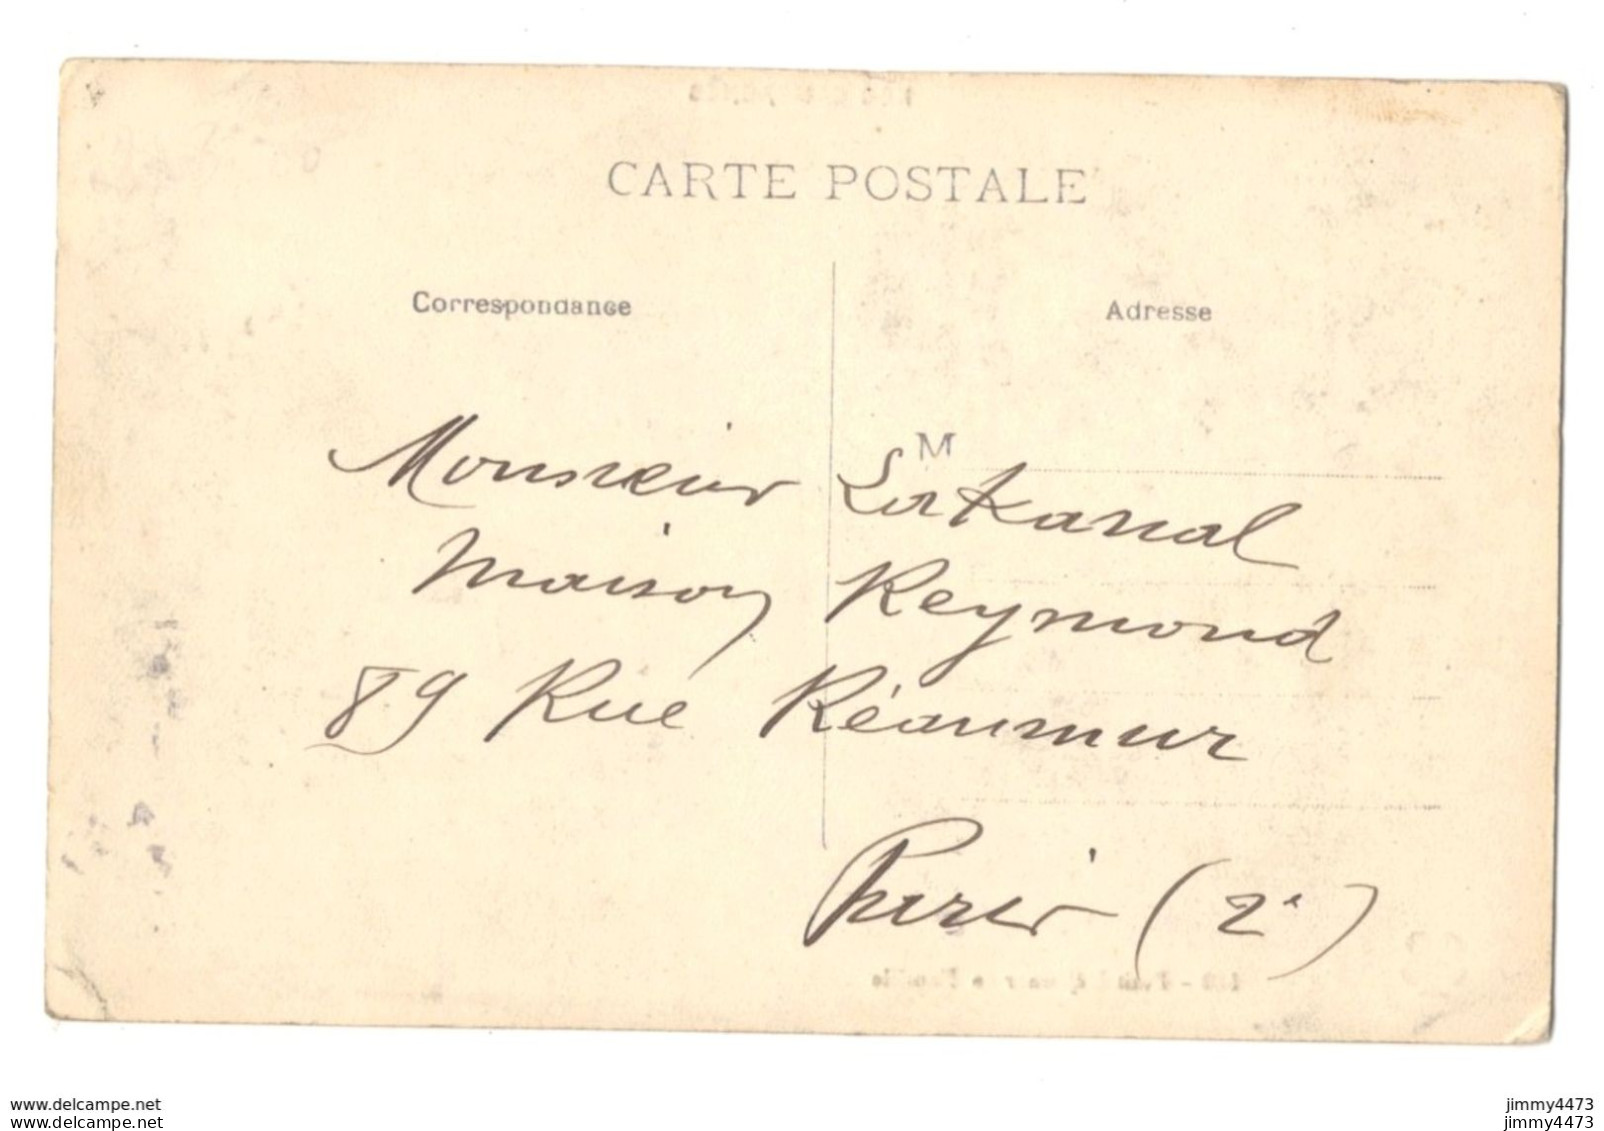 CARTE POSTALE
Correspondance
Adresse
M
Monsieur Lakanal
Maison Reymond
89 Rue Réaumur
Paris (2e)
www.delcampe.net
www.delcampe.net
jimmy4473
jimmy4473